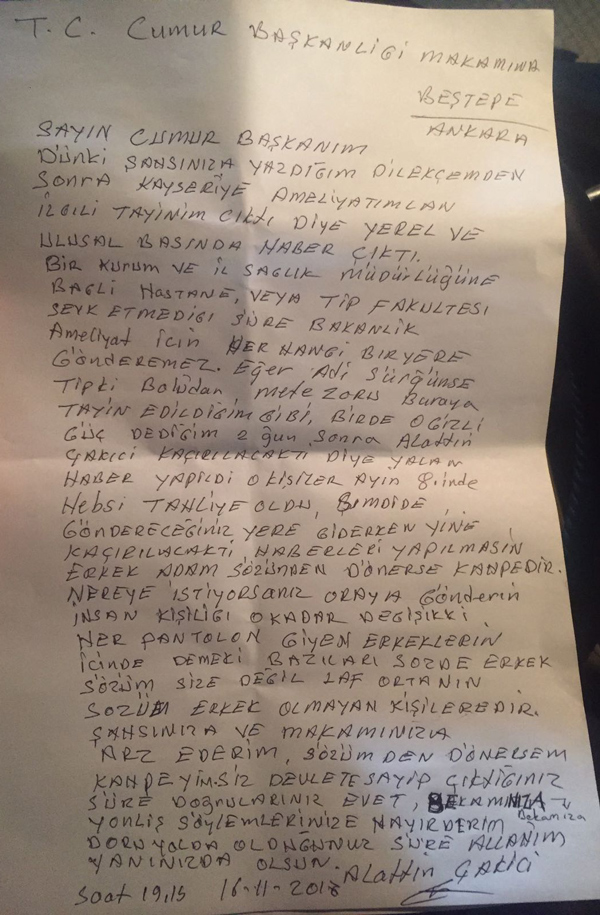 T. C. CUMUR BAŞKANLIĞI MAKAMINA
BEŞTEPE
ANKARA
SAYIN CUMUR BAŞKANIM
DÜNKİ ŞAHSINIZA YAZDIĞIM DİLEKÇEMDEN
SONRA KAYSERİYE AMELİYATIMLAN
İLGİLİ TAYİNİM ÇIKTI DİYE YEREL VE
ULUSAL BASINDA HABER ÇIKTI.
BİR KURUM VE İL SAĞLIK MÜDÜRLÜĞÜNE
BAGLİ HASTANE, VEYA TIP FAKULTESİ
SEVK ETMEDİĞİ SÜRE BAKANLIK
Ameliyat için HER HANGİ BİR YERE
GÖNDEREMEZ. Eğer Adi SÜRGÜNSE
TIPKI Bolu'dan Buraya
TAYİN EDİLDİĞİM GİBİ, BİRDE O GİZLİ
GÜÇ DEDİĞİM 2 Gün Sonra Alattin
ÇAKICI KAÇIRILACAKTI DİYE YALAN
HABER YAPILDI O KİŞİLER AYIN 8.inde
Hebsi TAHLİYE OLDU, ŞİMDİDE
GÖNDERECEĞİNİZ YERE GİDERKEN YİNE
KAÇIRILACAKTI HABERLERİ YAPILMASIN
ERKEK ADAM SÖZÜNDEN DÖNERSE KAHPEDİR.
NEREYE İSTİYORSANIZ ORAYA Gönderin
İNSAN KİŞİLİĞİ OKADAR DEĞİŞİKKİ
HER PANTOLON GİYEN ERKEKLERİN
İÇİNDE DEMEKİ BAZILARI SÖZDE ERKEK
SÖZÜM SİZE DEĞİL LAF ORTANIN
SÖZÜM ERKEK OLMAYAN KİŞİLEREDİR.
ŞAHSINIZA VE MAKAMINIZA
ARZ EDERİM, SÖZÜMDEN DÖNERSEM
KAHPEYİM. SİZ DEVLETE SAYIP ÇIKTIĞINIZ
SÜRE DOĞRULARINIZ EVET, BEKAMIZA
Bekamıza
YONLİŞ SÖYLEMLERİNİZE HAYIR DERİM
DORU YOLDA OLDUĞUNUZ SÜRE ALLAHIM
YANINIZDA OLSUN. Alattin ÇAKICI
Saat 19,15 16-11-2018